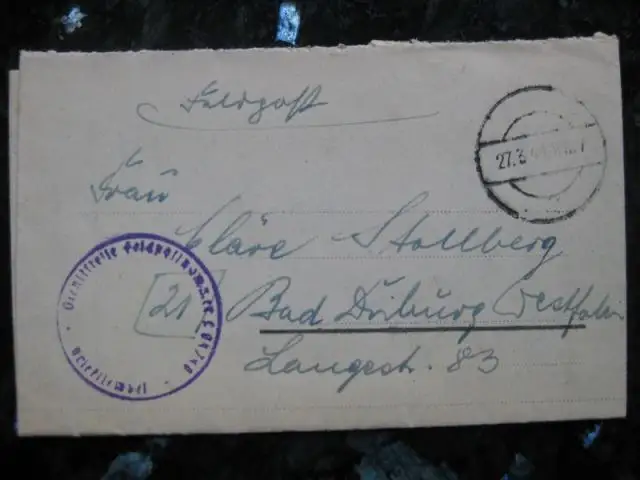 Feldpost
27.3.
Frau
Kläre Stollberg
(21) Bad Driburg Westfalen
Langestr. 83
Dienststelle Feldpostnummer
Briefstempel